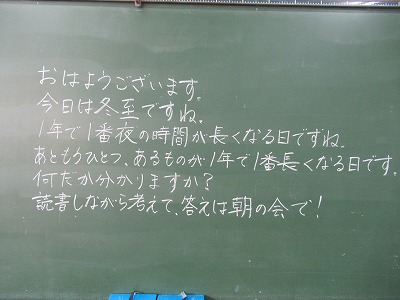 おはようございます。
今日は冬至ですね。
1年で1番夜の時間が長くなる日ですね。
あともうひとつ、あるものが1年で1番長くなる日です。
何だか分かりますか?
読書しながら考えて、答えは朝の会で!